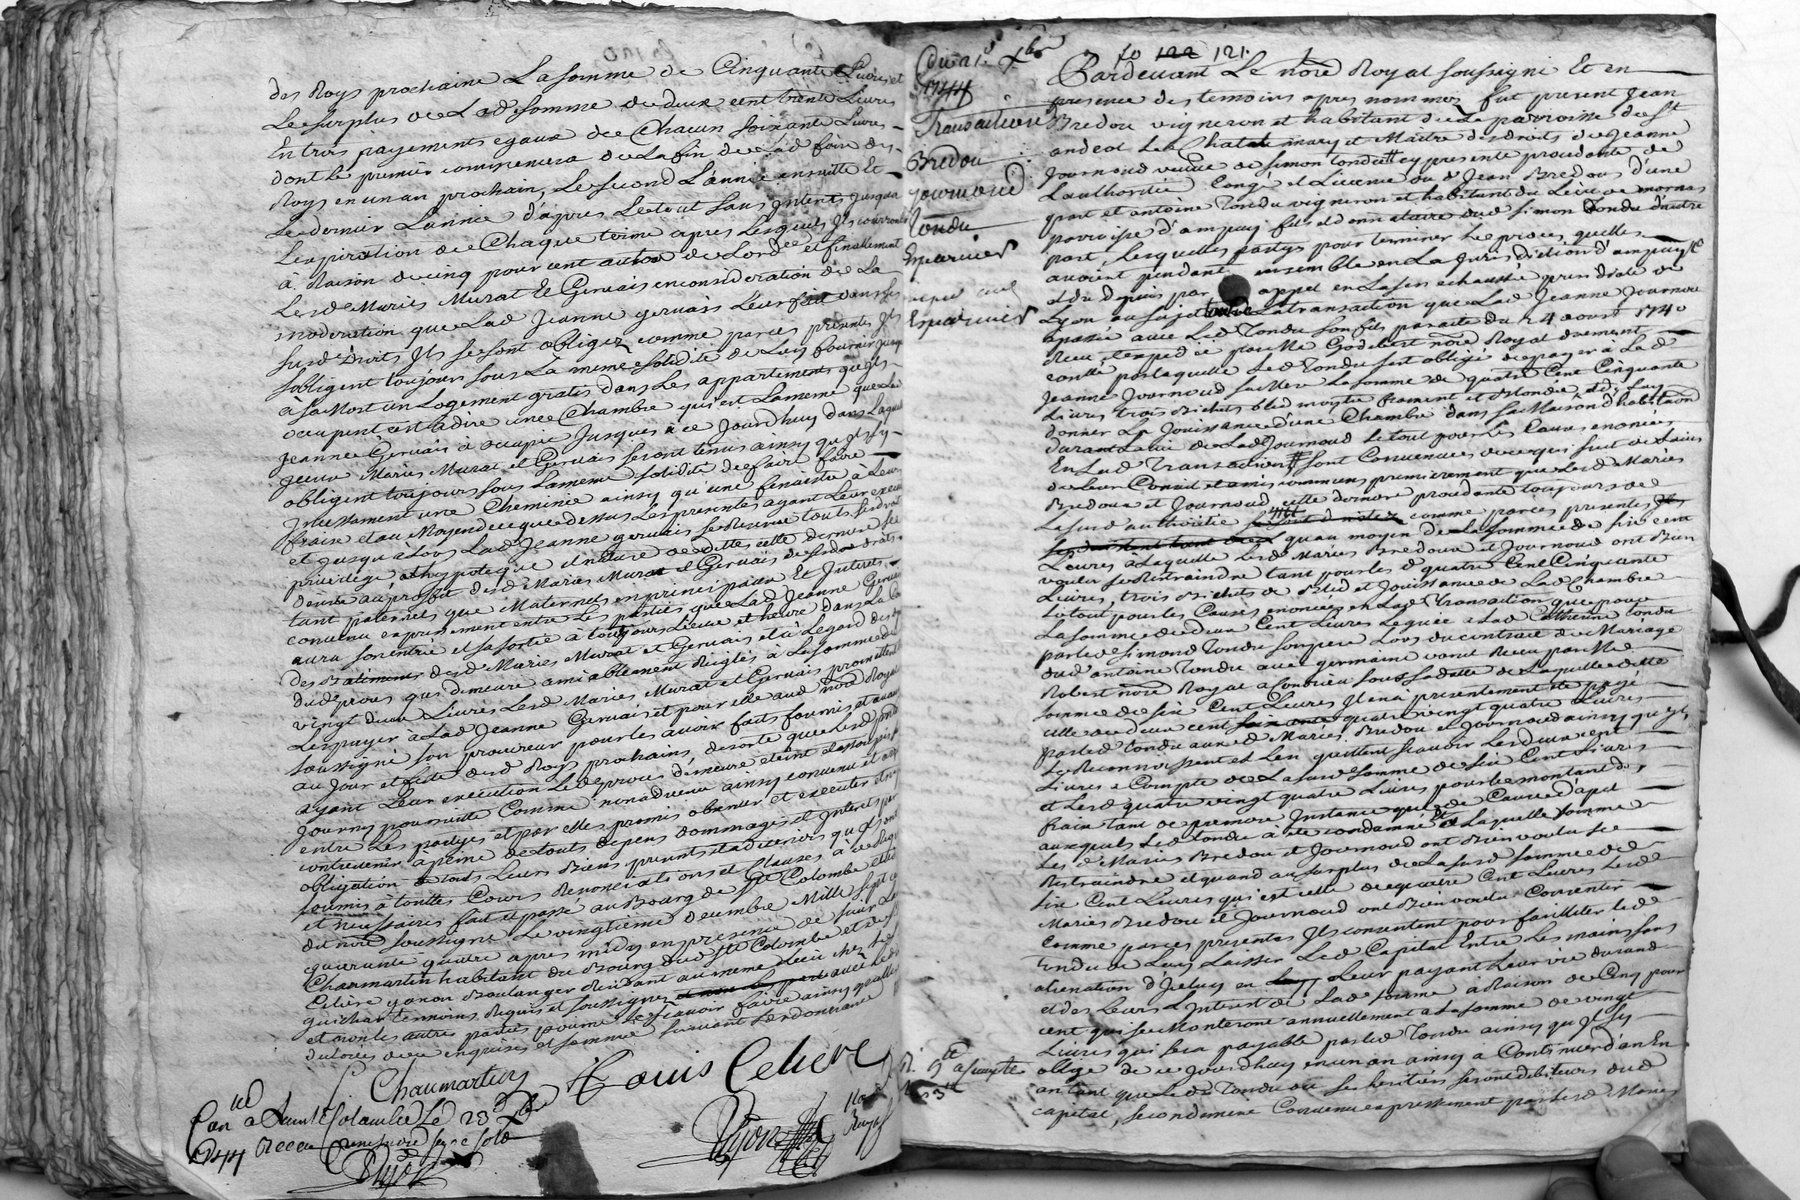 des Roys prochaine La somme de Cinquante Livres et
Le surplus de Lad somme de deux cent trente Livres
En trois payements egaux de Chacun soixante Livres
dont Le premier commencera de La fin de Lad foire des
Roys en un an prochain, Le second L'année ensuitte Et
Le dernier L'année d'apres Le tout sans Interet jusqua
Lexpiration de Chaque terme apres Lesquels Ils courront
à Raison de cinq pour cent au de Lord et finallement
Lesd Mariés Murat et Gervais en consideration de La
moderation que Lad Jeanne gervais Leur fait dans ses
susd Droits Ils se sont obligez comme par ces presentes Ils
sobligent toujours sous La meme solidité de Luy fournir jusqu
à sa Mort un Logement gratis dans Les appartements qu'ils
occupent cest à dire une Chambre qui est La meme que Lad
Jeanne Gervais à occupée Jusques à ce Jourd'huy dans Laquelle
Mariés Murat et Gervais seront tenus ainsy qu'ils sy
obligent toujours sous La meme solidité de faire faire
Incessament une Cheminée ainsy qu'une fenestre à Leurs
fraix et au Moyen de ce que dessus Les presentes ayant Leur execu
et jusqu'à Lors Lad Jeanne gervais se Reserve tous ses droits
privilege et hypoteque
au proffit desd Mariés Murat et Gervais de sesd droits
tant paternels que Maternels en principaux Et Interets
convenu expressement entre Les parties que Lad Jeanne Gervais
aura son entrée et sa sortie à toutjours Lieux et heure dans La
des Batiments desd Mariés Murat et Gervais et à Legard des
dud proces qui demeure amiablement Reiglés à La somme de
vingt deux Livres Lesd Mariés Murat et Gervais promettent
Les payer à Lad Jeanne Gervais et pour elle aud nore Royal
soussigné son procureur pour les avoir faits fournis et avan
au Jour et feste desd Roys prochains desorte que Lesd pntes
ayant Leur execution Led proces demeure eteint et assoupis
poursuitte Comme non advenu ainsy convenu et
entre Les partyes et par elles promis observer et executer et
contrevenir apeine de touts depens dommages et Interets par
obligation de touts Leurs Biens presents et advenirs qu'ils ont
soumis à touttes Cours Renonciations et Clauses à ce
et necessaires fait et passé au Bourg de Ste Colombe
du nore soussigné Le vingtieme decembre Mille sept
quarante quatre apres midy en presence de
Charmartin habitant du Bourg dud Ste Colombe et
Celiere garçon Boulanger Residant au meme Lieu
temoins Requis et soussignez avec
et non les autres parties pour ne Le sçavoir faire ainsy
de ce enquises et sommées suivant Lordonnance
Chaumartin Louis Celiere
Con à Sainte Colombe Le 23e
1744 Receu
nore Royal
du 21e Xbre 1744
Transaction
Bredou
Journoud
Tondu
Expedié
Expedié
10 122 121.
Pardevant Le nore Royal soussigné Et en
presence des temoins apres nommez fut present Jean
Bredou vigneron et habitant de La parroisse de St
andeol Le Chatel mary et Maitre des droits de Jeanne
Journoud veuve de simon Tondu cy presente procedante de
L'authorité Congé et Licence dud Jean Bredou d'une
part et antoine Tondu vigneron et habitant du Lieu de
parroisse d'ampuy fils et donnataire dud simon Tondu d'autre
part, Lesquelles partyes pour terminer Le proces quelles
avoient pendant ensemble en La Jurisdiction d'ampuy
et du depuis par appel en La senechaussée presidiale de
Lyon au sujet de La transaction que Lad Jeanne Journoud
à passée avec Led Tondu son fils pardatte du 24 aoust 1740
Receu et expediée par Me Godebert nore Royal
par Laquelle Led Tondu sest obligé de payer à Lad
Jeanne Journoud sa Mere La somme de quatre Cent Cinquante
Livres trois Bichets bled moytié froment et
donner La Jouissance d'une Chambre dans sa Maison d'habitaon
durant La vie de Lad Journoud Le tout pour Les Causes enoncées
En Lad Transaction sont Convenues de ce qui suit de L'avis
de Leur Conseil et amis communs premierement que Lesd Mariés
Bredou et Journoud cette derniere procedante toujours de
La susd authorité comme par ces presentes
quau moyen de La somme de six cent
Livres a Laquelle Lesd Mariés Bredou et Journoud ont Bien
voulu se Restraindre tant pour les d quatre Cent Cinquante
Livres, trois Bichets de Bled et Jouissance de Lad Chambre
Le tout pour les Causes enoncées en Lad Transaction que pour
La somme de deux Cent Livres Leguée a Lad Catherine Tondu
par led simond Tondu son pere Lors du contract de Mariage
dud antoine Tondu avec germaine Receu par Me
Robert nore Royal a Condrieu sous sa datte de Laquelle ditte
somme de six Cent Livres Il en a presentement été payé
celle de deux cent quatre vingt quatre Livres
par led Tondu auxd Mariés Bredou et Journoud ainsy qu'Ils
Le Reconnoissent et Len quittent sçavoir Les deux cent
Livres à Compte de La susd somme de six Cent Livres
et Lesd quatre vingt quatre Livres pour Le montant des
fraix tant de premiere Instance que de Cause d'apel
auxquels Led Tondu à été condamné a Laquelle somme
Les d Mariés Bredou et Journoud ont Bien voulu se
Restraindre et quand au surplus de La susd somme de
six Cent Livres qui est celle de quatre Cent Livres Lesd
Mariés Bredou et Journoud ont Bien voulu Consentir
Comme par ces presentes Ils consentent pour faciliter Led
Tondu de Luy Laisser Led Capital Entre Les mains sans
alienation d'Iceluy en Leur payant Leur vie durand
et des Leurs L'Interet de Lad somme a Raison de Cinq pour
cent qui se Monteront annuellement a La somme de vingt
Livres qui sera payable par led Tondu ainsy qu'Il sy
oblige de ce Jourd'huy en un an ainsy à Continuer d'an En
an tant que Led Tondu ou ses heritiers seront debiteurs dud
capital, secondement Convenu expressement par lesd Mariés